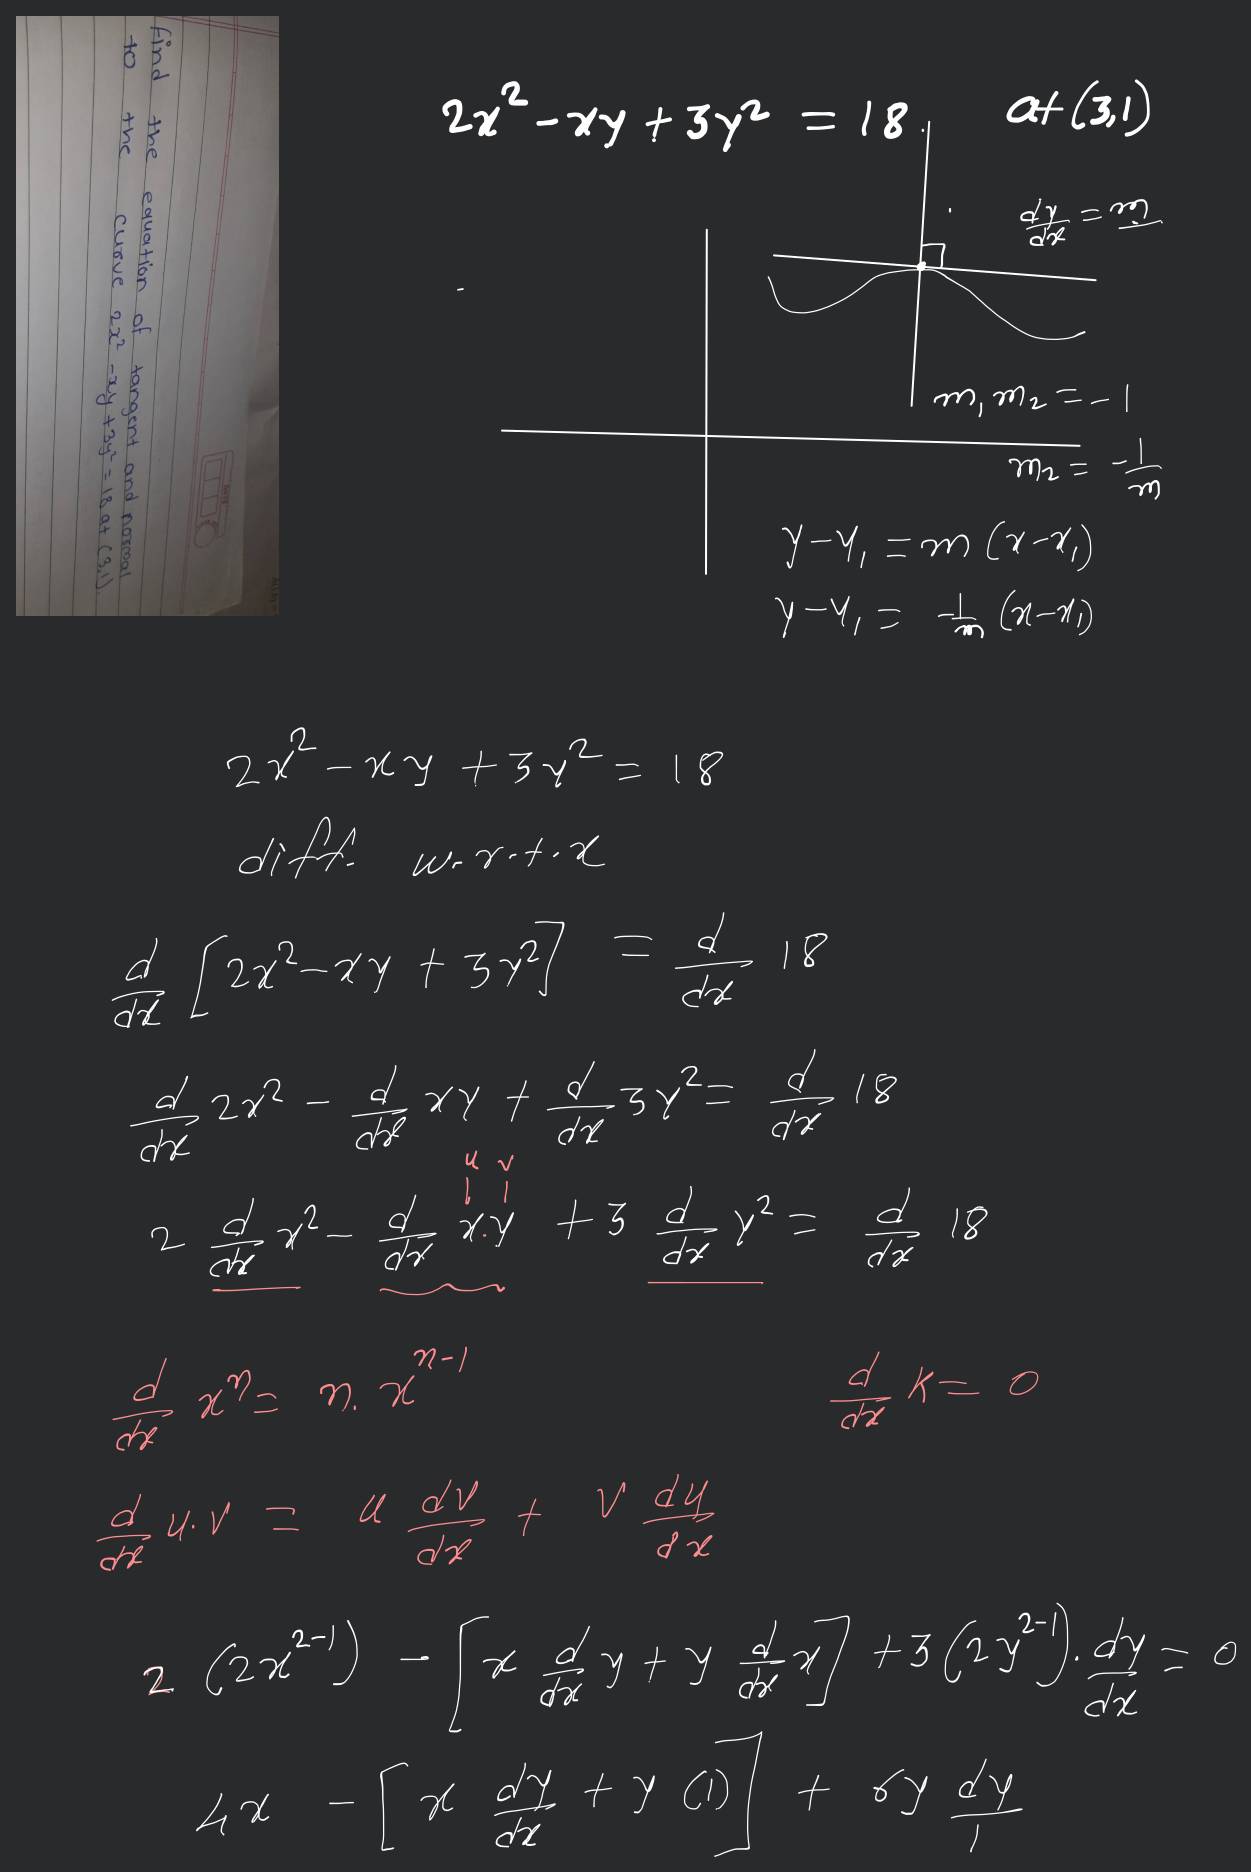 Find the equation of tangent and normal
to the curve 2x² - xy + 3y² = 18 at (3,1).
2x² - xy + 3y² = 18 at (3,1)
dy/dx = m
m₁ m₂ = -1
m₂ = -1/m
y - y₁ = m (x - x₁)
y - y₁ = -1/m (x - x₁)
2x² - xy + 3y² = 18
diff. w.r.t. x
d/dx [2x² - xy + 3y²] = d/dx 18
d/dx 2x² - d/dx xy + d/dx 3y² = d/dx 18
u v
2 d/dx x² - d/dx x.y + 3 d/dx y² = d/dx 18
d/dx xⁿ = n. xⁿ⁻¹ d/dx K = 0
d/dx u.v = u dv/dx + v du/dx
2 (2x²⁻¹) - [x d/dx y + y d/dx x] + 3 (2y²⁻¹). dy/dx = 0
4x - [x dy/dx + y (1)] + 6y dy/